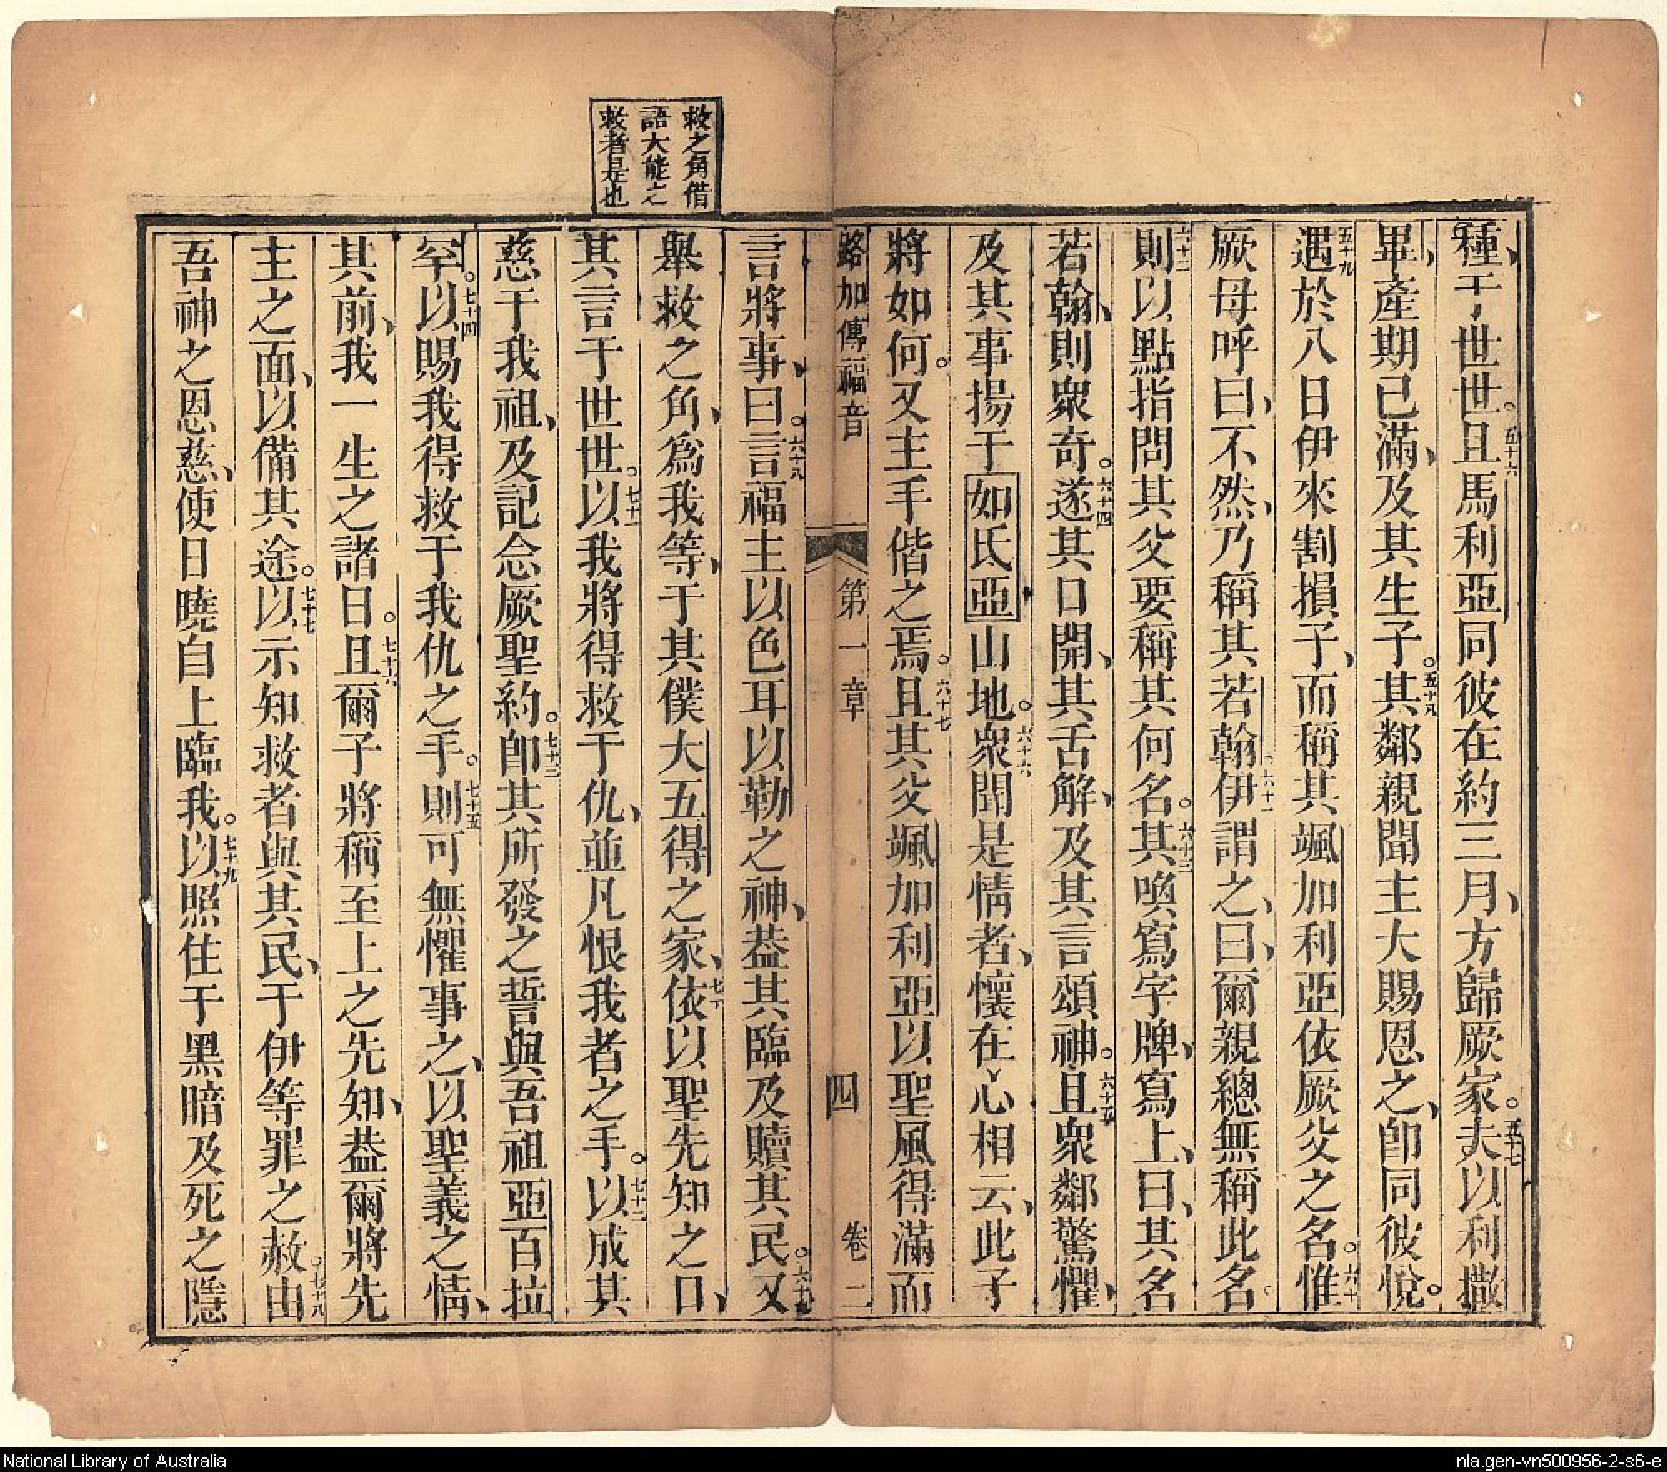 種于世世。五十六且馬利亞同彼在約三月、方歸厥家。五十七夫以利撒
畢、產期已滿、及其生子。五十八其鄰親聞主大賜恩之、即同彼悅。
五十九遇於八日伊來割損子、而稱其颯加利亞依厥父之名。六十惟
厥母呼曰、不然、乃稱其若翰。六十一伊謂之、曰、爾親總無稱此名。
六十二則以點指問其父要稱其何名。六十三其喚寫字牌、寫上、曰、其名
若翰、則衆奇。六十四遂其口開、其舌解、及其言頌神。六十五且衆鄰驚懼、
及其事揚于如氐亞山地。六十六衆聞是情者、懷在心相云、此子
將如何。又主手偕之焉。六十七且其父颯加利亞以聖風得滿而
路加傳福音 第一章 四 卷二
救之角借
語大能之
救者是也
言將事、曰。六十八言福主以色耳以勒之神、葢其臨及贖其民。六十九又
舉救之角、爲我等、于其僕大五得之家、七十依以聖先知之口、
其言于世世。七十一以我將得救于仇、並凡恨我者之手。七十二以成其
慈于我祖、及記念厥聖約。七十三即其所發之誓與吾祖亞百拉
罕。七十四以賜我得救于我仇之手。七十五則可無懼事之、以聖義之情、
其前、我一生之諸日。七十六且爾子將稱至上之先知、葢爾將先
主之面、以備其途。七十七以示知救者與其民、于伊等罪之赦。七十八由
吾神之恩慈、使日曉自上臨我。七十九以照住于黑暗及死之隱
National Library of Australia
nla.gen-vn500956-2-s6-e